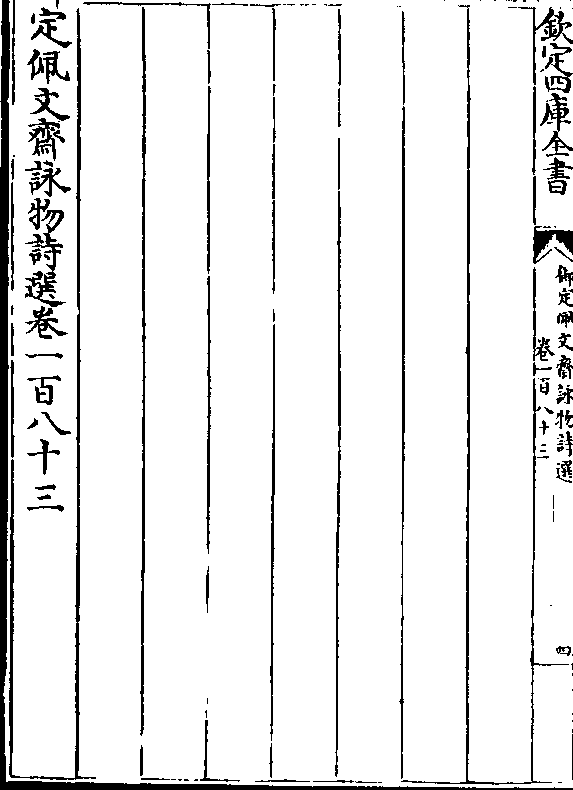 欽定四庫全書
御定佩文齋詠物詩選
卷一百八十三
四
定佩文齋詠物詩選卷一百八十三